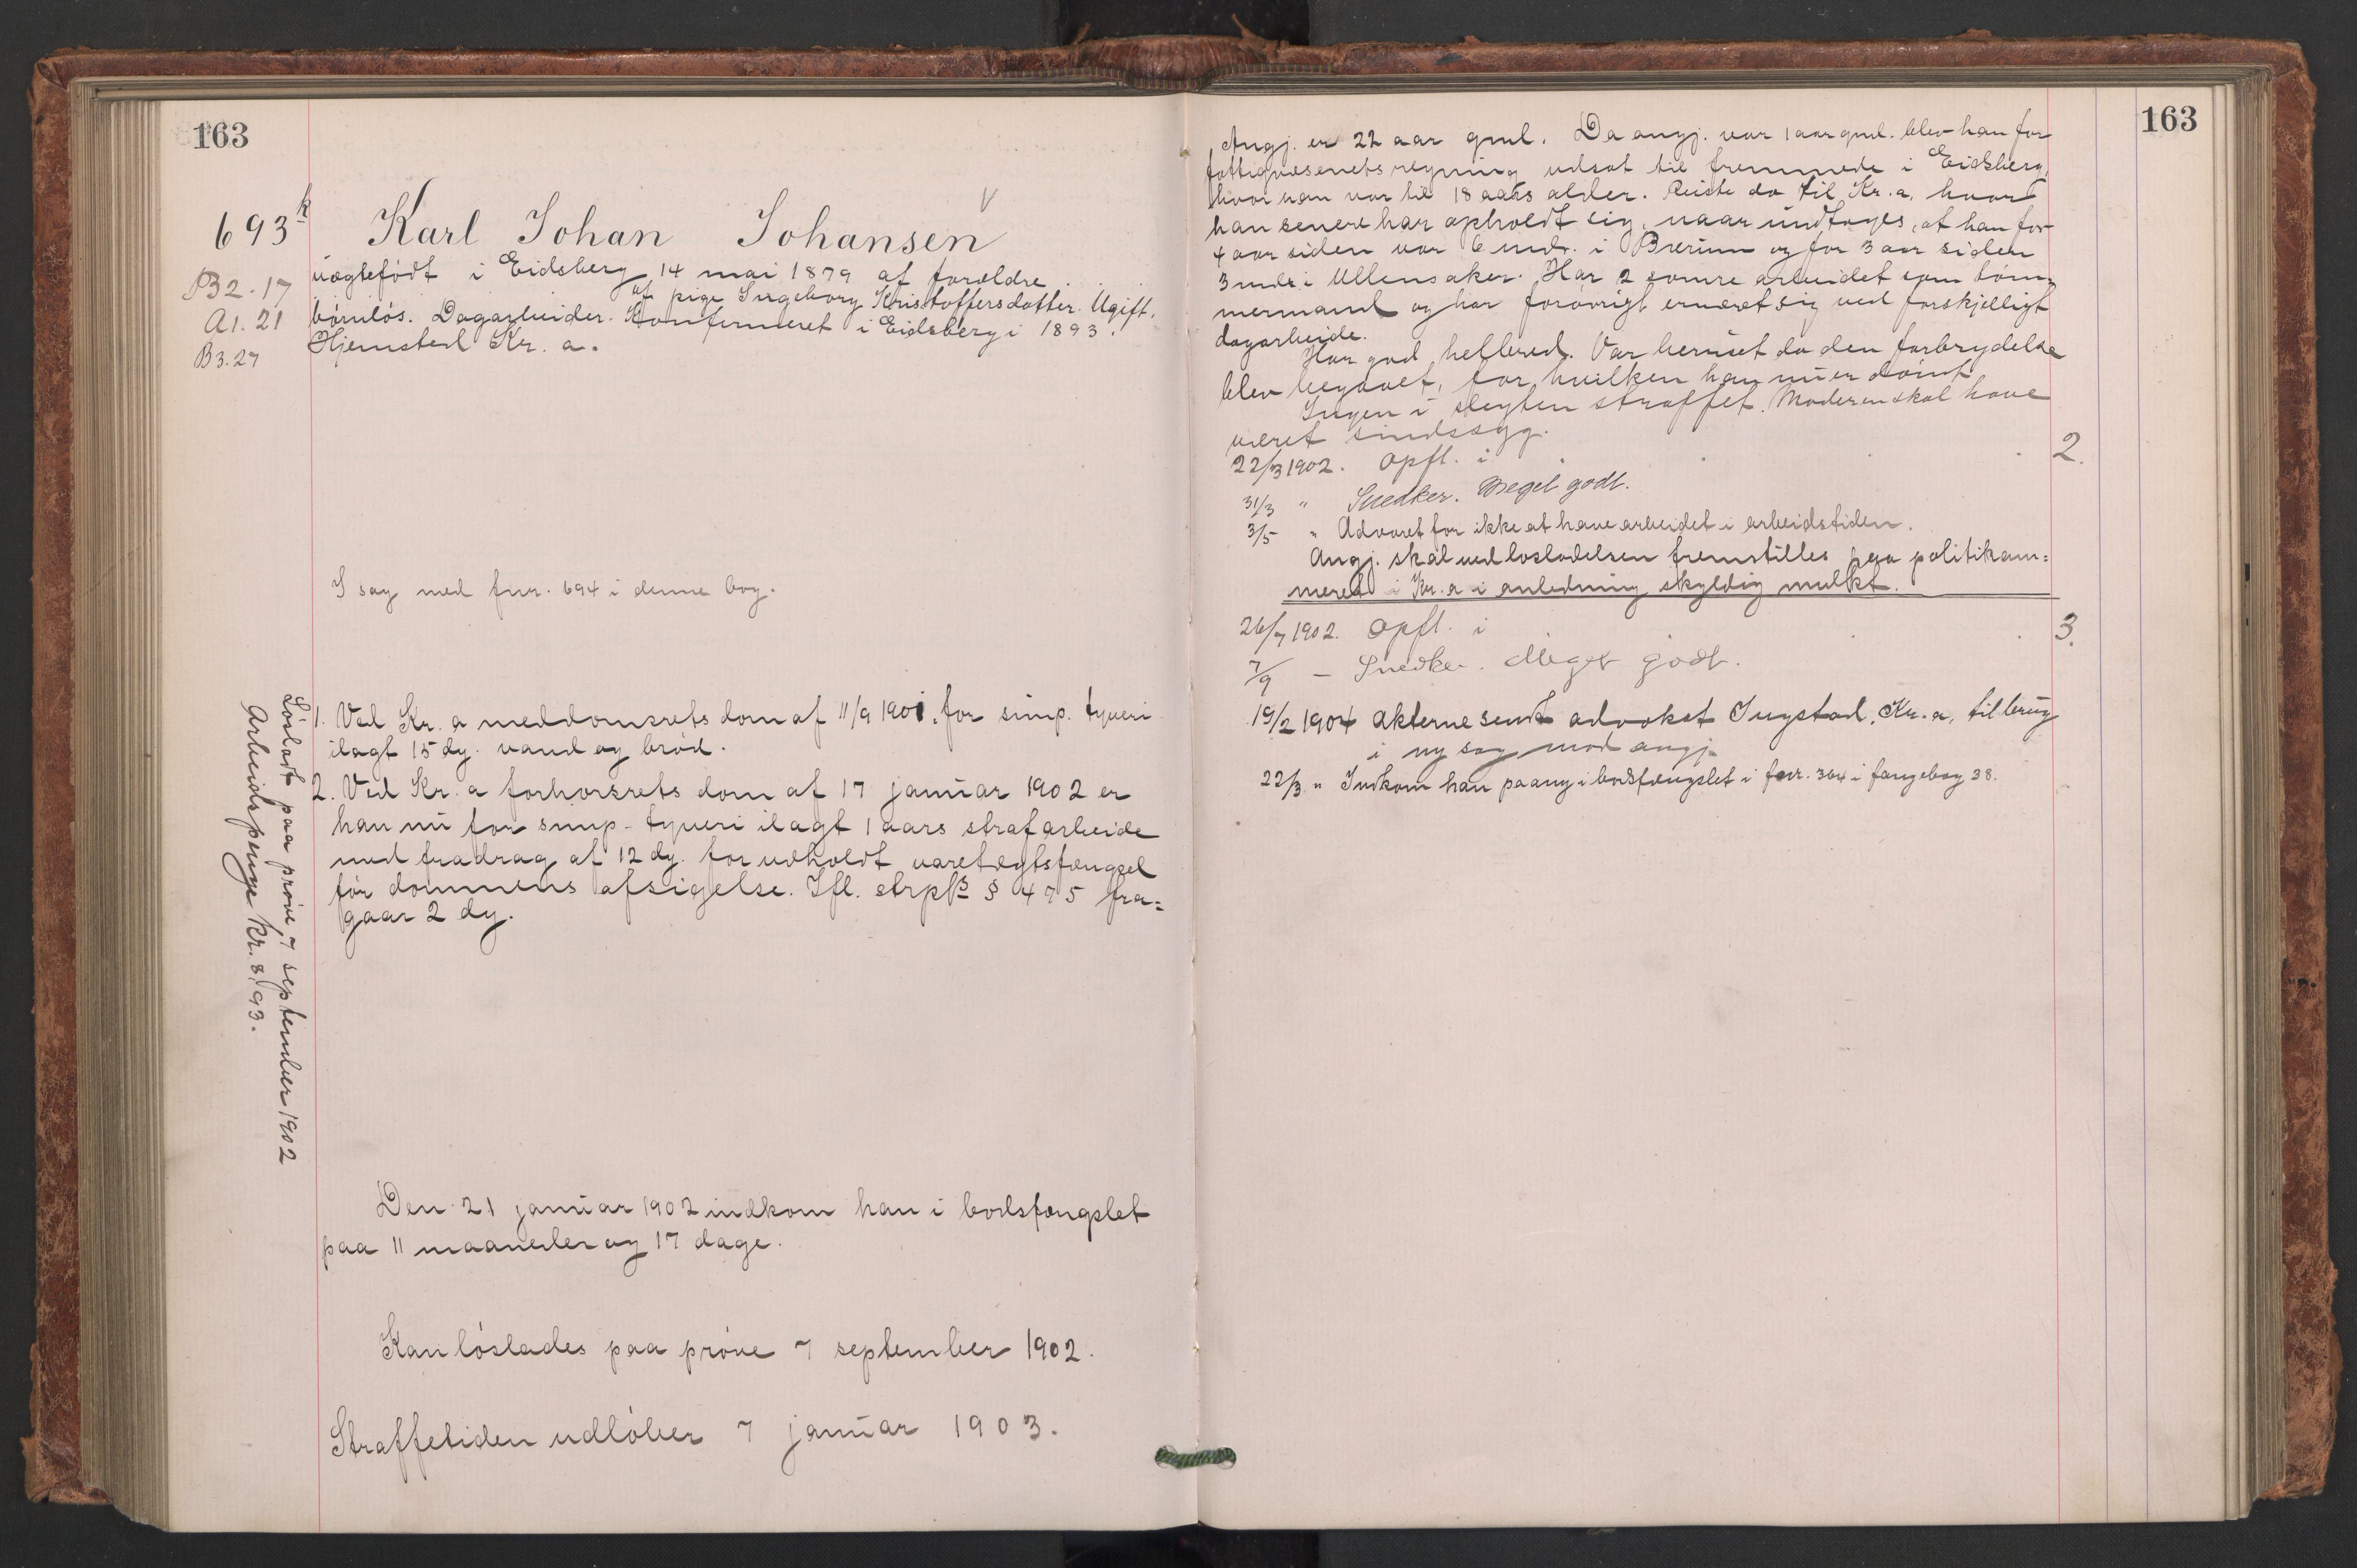 163
693 k
Karl Johan Johansen
V
B2.17
A1.21
B3.27
uægtefödt i Eidsberg 14 mai 1879 af forældre
af pige Ingeborg Kristoffersdatter. Ugift,
barnlös. Dagarbeider. Konfirmeret i Eidsberg i 1893.
Hjemsted Kr.a.
I sag med fnr. 694 i denne bog.
1. Ved Kr.a meddomsrets dom af 11/9 1901, for simp. tyveri
ilagt 15 dg. vand og bröd.
2. Ved Kr.a forhörsrets dom af 17 januar 1902 er
han nu for simp. tyveri ilagt 1 aars strafarbeide
med fradrag af 12 dg. for udholdt varetægtsfængsel
för dommens afsigelse. Ifl. strpls § 475 fra=
gaar 2 dg.
Löslodt paa pröve 7 september 1902
Arbeidspenge kr. 8,93.
Den 21 januar 1902 indkom han i bodsfængslet
paa 11 maaneder og 17 dage.
Kan löslades paa pröve 7 september 1902.
Straffetiden udlöber 7 januar 1903.
163
Angj. er 22 aar gml. Da angj. var 1 aar gml. blev han for
fattigvæsenets regning udsat til fremmede i Eidsberg,
hvor han var til 18 aars alder. Reiste da til Kr.a, hvor
han senere har opholdt sig, naar undtages, at han for
4 aar siden var 6 mdr. i Bærum og for 3 aar siden
3 mdr i Ullensaker. Har 2 somre arbeidet som töm=
mermand og har forövrigt ernæret sig ved forskjelligt
dagarbeide.
Har god helbred. Var beruset da den forbrydelse
blev begaaet, for hvilken han nu er dömt.
Ingen i slegten straffet. Moderen skal have
været sindssyg.
22/3 1902. Opfl. i . . . 2.
31/3 " Snedker. Meget godt.
3/5 " Advaret for ikke at have arbeidet i arbeidstiden.
Angj. skal ved losladelsen fremstilles paa politikam=
meret i Kr.a i anledning skyldig mulkt.
26/7 1902. Opfl. i . . 3.
7/9 — Snedker. Meget godt.
19/2 1904 akterne sendt advokat Ingstad, Kr.a, til brug
i ny sag mod angj.
22/3 " Indkom han paany i bodsfængslet i fnr. 364 i fangebog 38.